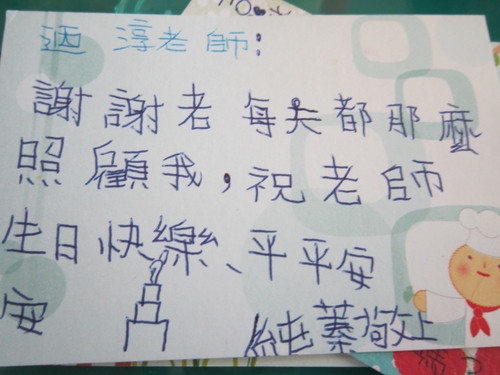 迺淳老師:
謝謝老每天都那麼
照顧我,祝老師
生日快樂、平平安
安 純蓁敬上